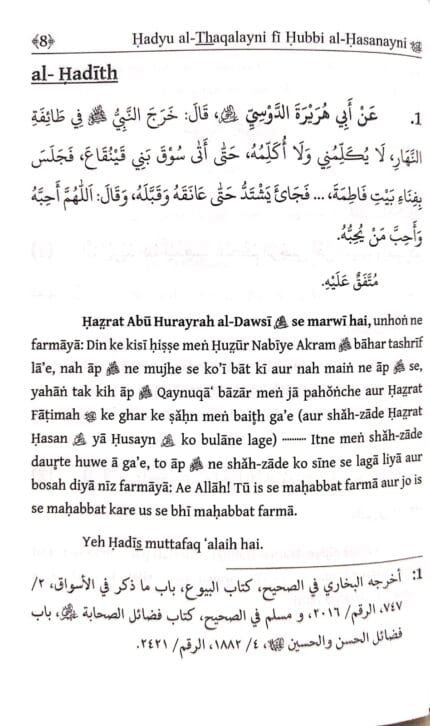 ﴾8﴿ Ḥadyu al-Thaqalayni fī Ḥubbi al-Ḥasanayni
al- Ḥadīth
1. عَنْ أَبِي هُرَيْرَةَ الدَّوْسِيِّ ﷺ، قَالَ: خَرَجَ النَّبِيُّ ﷺ فِي طَائِفَةِ
النَّهَارِ، لَا يُكَلِّمُنِي وَلَا أُكَلِّمُهُ، حَتَّى أَتَى سُوْقَ بَنِي قَيْنُقَاعَ، فَجَلَسَ
بِفِنَاءِ بَيْتِ فَاطِمَةَ، ... فَجَائَ يَشْتَدُّ حَتَّى عَانَقَهُ وَقَبَّلَهُ، وَقَالَ: اَللّٰهُمَّ أَحِبَّهُ
وَأَحِبَّ مَنْ يُحِبُّهُ.
مُتَّفَقٌ عَلَيْهِ.
Haẓrat Abū Hurayrah al-Dawsī se marwī hai, unhoṅ ne
farmāyā: Din ke kisī ḥiṣṣe meṅ Ḥuẓūr Nabīye Akram ﷺ bāhar tashrīf
lā'e, nah āp ﷺ ne mujhe se ko'ī bāt kī aur nah maiṅ ne āp ﷺ se,
yahāṅ tak kih āp ﷺ Qaynuqā‘ bāzār meṅ jā pahoṅche aur Ḥaẓrat
Fāṭimah ke ghar ke ṣaḥn meṅ baiṭh ga'e (aur shāh-zāde Ḥaẓrat
Ḥasan yā Ḥusayn ko bulāne lage) ·········· Itne meṅ shāh-zāde
dauṛte huwe ā ga'e, to āp ﷺ ne shāh-zāde ko sīne se lagā liyā aur
bosah diyā nīz farmāyā: Ae Allāh! Tū is se maḥabbat farmā aur jo is
se maḥabbat kare us se bhī maḥabbat farmā.
Yeh Ḥadīs muttafaq ‘alaih hai.
1: أخرجه البخاري في الصحيح، كتاب البيوع، باب ما ذكر في الأسواق، ٢/
٧٤٧، الرقم/٢٠١٦، و مسلم في الصحيح، كتاب فضائل الصحابة، باب
فضائل الحسن والحسين، ٤/ ١٨٨٢، الرقم/ ٢٤٢١.